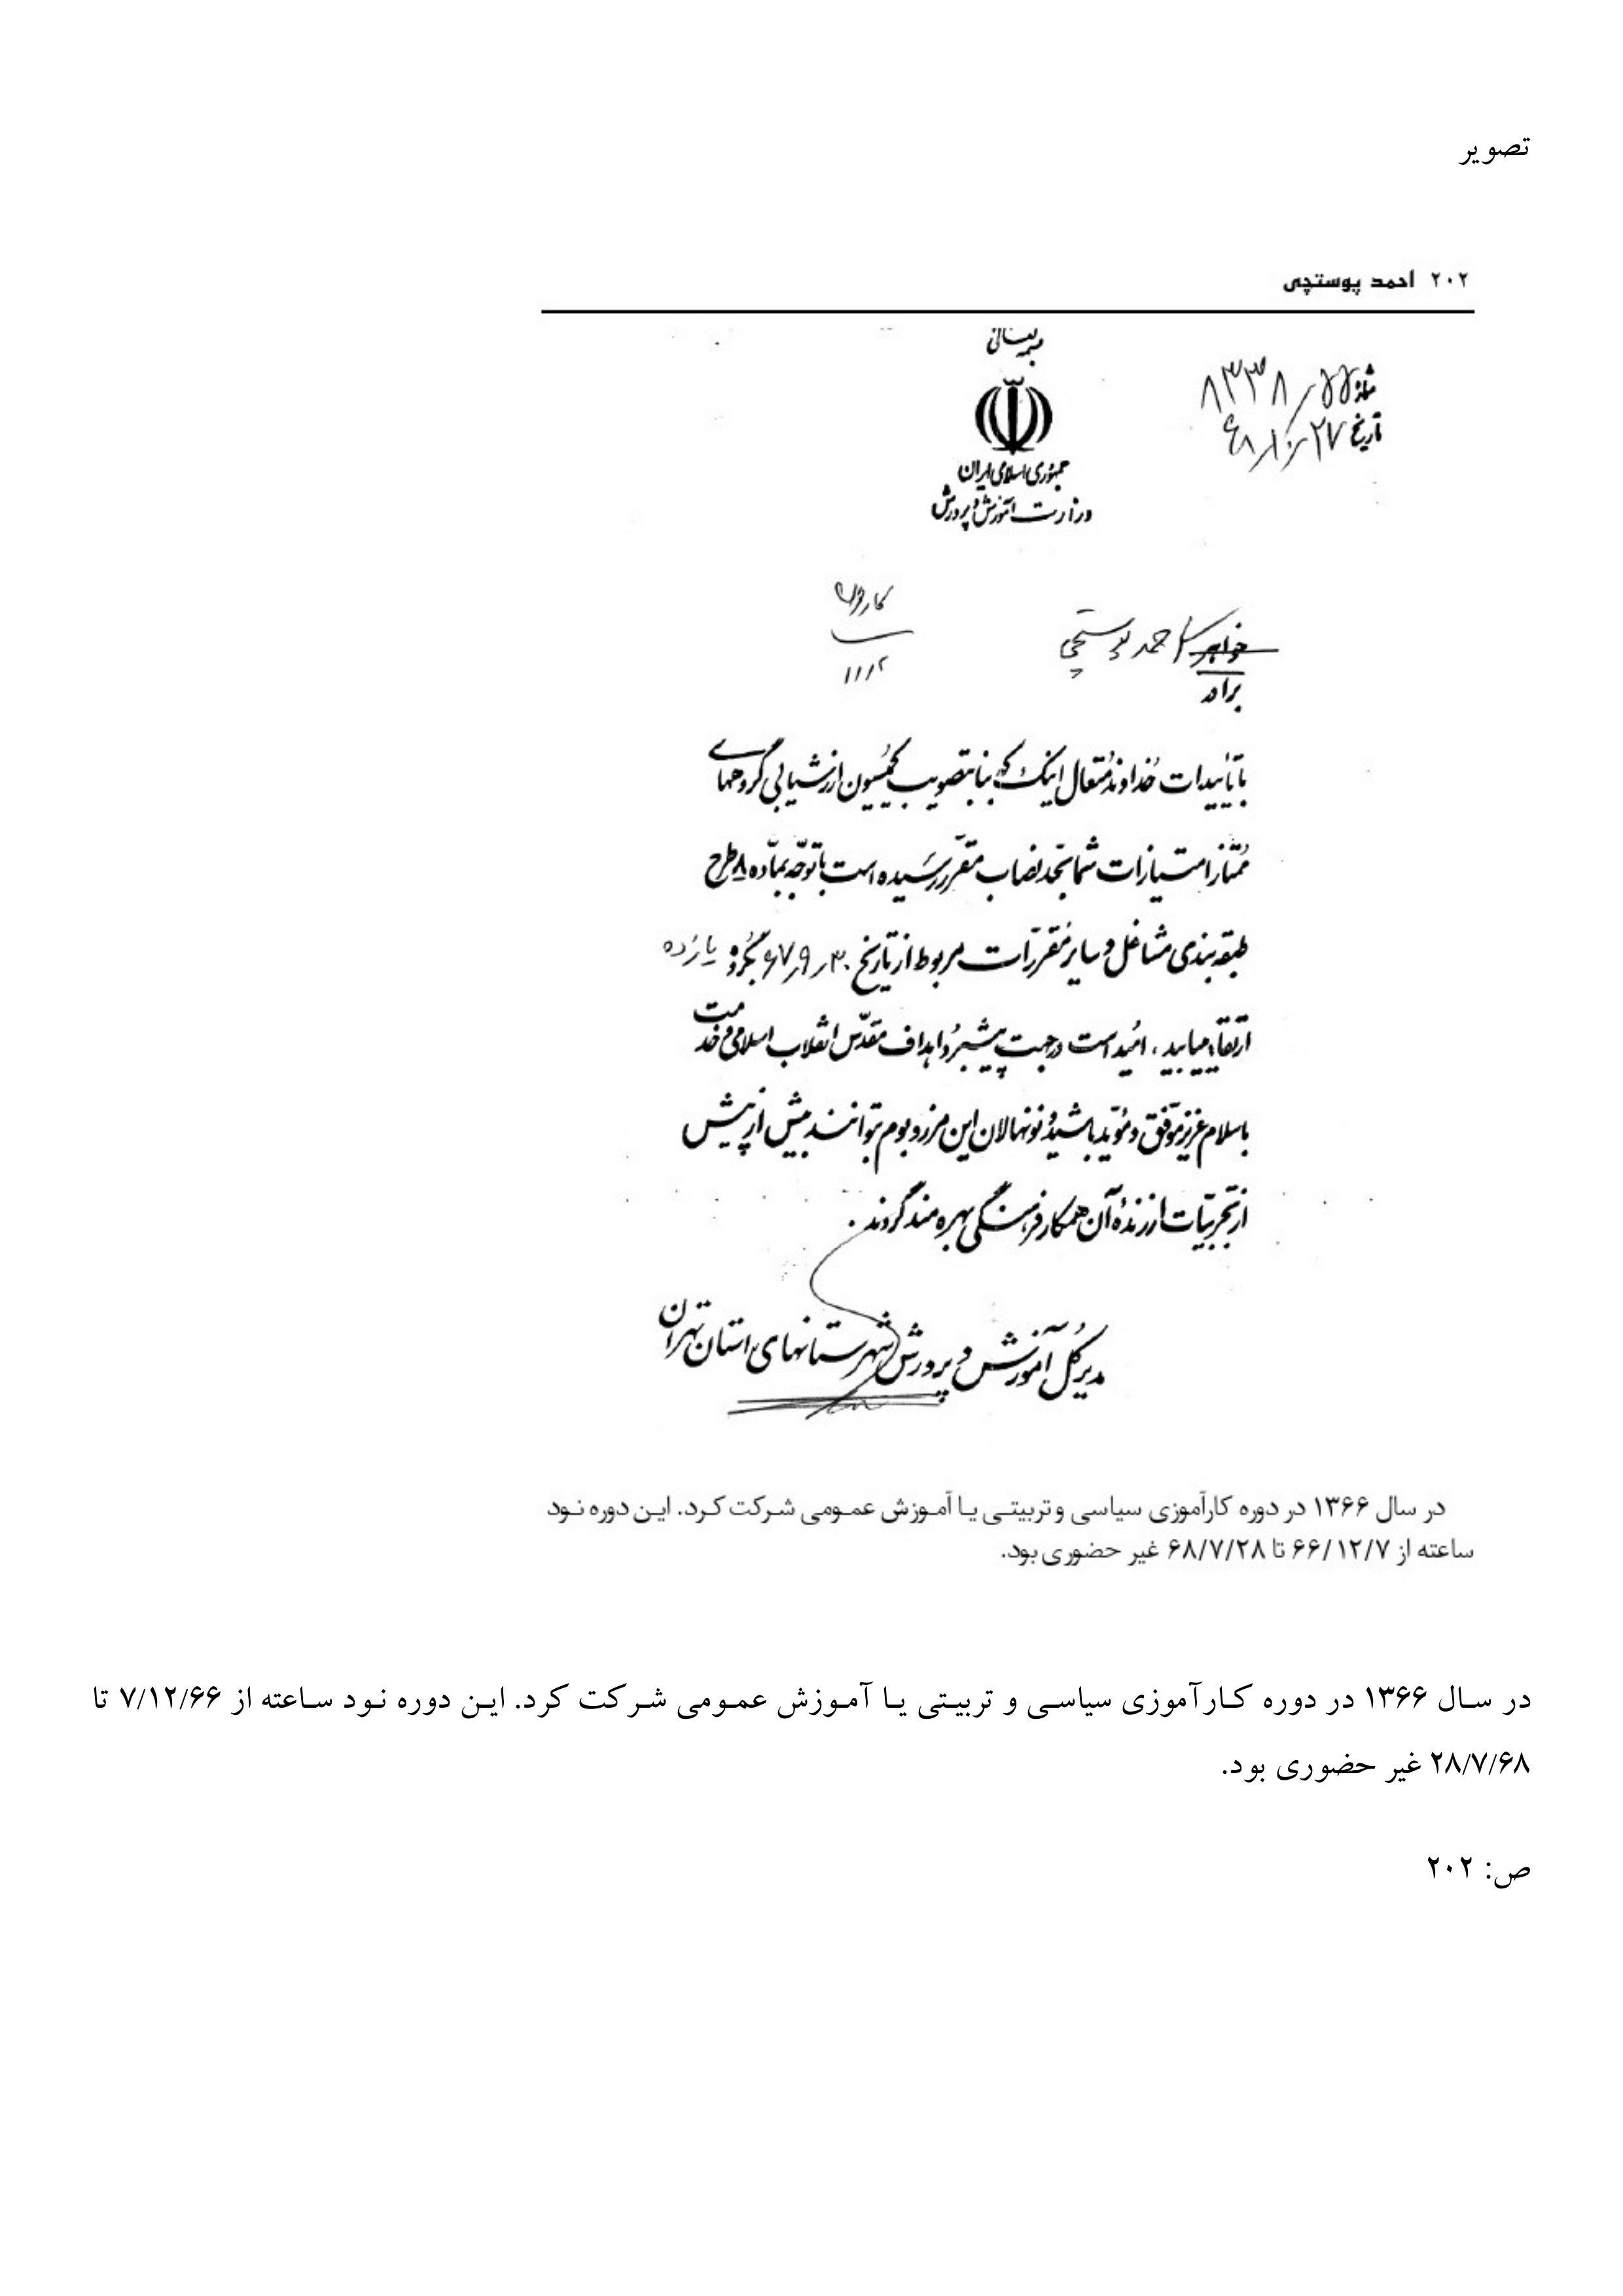 تصویر
۲۰۲ احمد پوستچی
بسمه تعالی
شماره ۸۳۳۸/۵۵
تاریخ ۲۷/۱۰/۶۸
جمهوری اسلامی ایران
وزارت آموزش و پرورش
خواهر احمد پوستچی
برادر
۱۱/۲
با تأییدات خداوند متعال اینک که بنا بتصویب کمیسیون ارزشیابی گروههای
ممتاز امتیازات شما بحد نصاب مقرر رسیده است با توجه بماده ۸ طرح
طبقه بندی مشاغل و سایر مقررات مربوط از تاریخ ۶۷/۹/۳۰ بگروه یازده
ارتقاء مییابید، امید است در جهت پیشبرد اهداف مقدس انقلاب اسلامی و خدمت
باسلام عزیز موفق و مؤید باشید و نونهالان این مرز و بوم بتوانند بیش از پیش
از تجربیات ارزنده آن همکار فرهنگی بهره مند گردند.
مدیر کل آموزش و پرورش شهرستانهای استان تهران
در سال ۱۳۶۶ در دوره کارآموزی سیاسی و تربیتی یا آموزش عمومی شرکت کرد. این دوره نود
ساعته از ۶۶/۱۲/۷ تا ۶۸/۷/۲۸ غیر حضوری بود.
در سال ۱۳۶۶ در دوره کارآموزی سیاسی و تربیتی یا آموزش عمومی شرکت کرد. این دوره نود ساعته از ۷/۱۲/۶۶ تا
۲۸/۷/۶۸ غیر حضوری بود.
ص: ۲۰۲